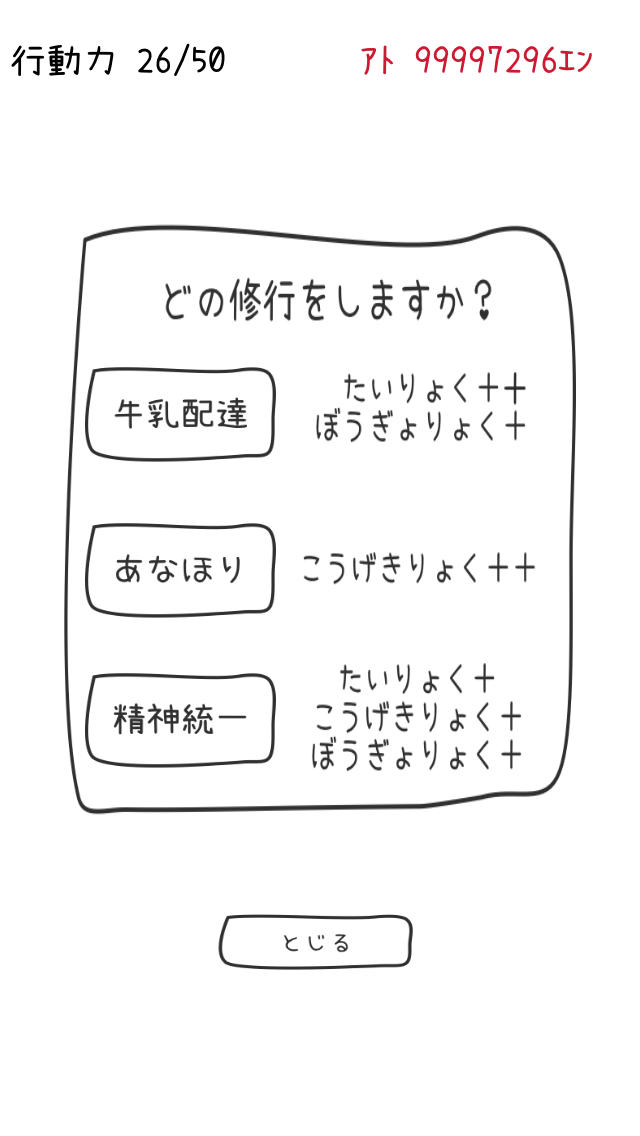 行動力 26/50
ｱﾄ 99997296ｴﾝ
どの修行をしますか？
牛乳配達
たいりょく++
ぼうぎょりょく+
あなほり
こうげきりょく++
精神統一
たいりょく+
こうげきりょく+
ぼうぎょりょく+
とじる